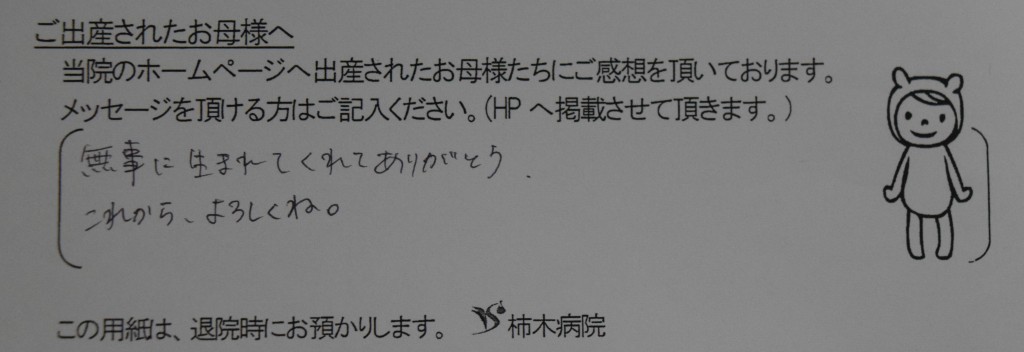 ご出産されたお母様へ
当院のホームページへ出産されたお母様たちにご感想を頂いております。
メッセージを頂ける方はご記入ください。(HP へ掲載させて頂きます。)
無事に生まれてくれてありがとう.
これから、よろしくね。
この用紙は、退院時にお預かりします。 柿木病院